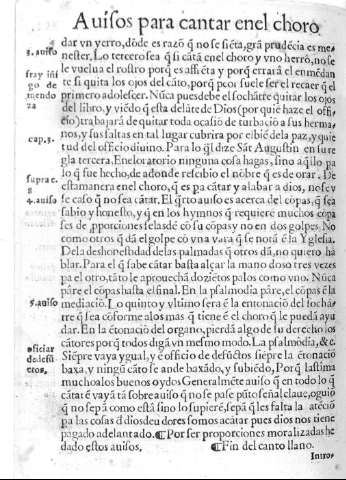 Auisos para cantar enel choro
3. auiso
fray iñigo de mendoza
cap. 3.
supra c. 8
4. auiso
5. auiso
oficiar defuertos,
dar vn yerro, dōde es razō q̄ no se siēta, grā prudēcia es menester. Lo tercero sea q̄ si cātā enel choro y vno herrō, no se
le vuelua el rostro porq̄ es affiēta y porq̄ errará el enmēdar
te si quita los ojos del cāto, porq̄
primero adolescer. Nūca puesdebe el sochātre quitar los ojos
del libro, y viēdo q̄ esta delāte de Dios (por quiē haze el officio) trabajará de quitar toda ocasiō de turbaciō a sus hermanos, y sus faltas en tal lugar cubrira por el biē dela paz, y quie
tud del officio diuino. Para lo q̄l dize Sāt Augustin en su re
gla tercera. Enel oratorio ninguna cosa hagas, sino aq̄llo pa
lo q̄ fue hecho, de adonde rescibio el nōbre q̄ es de orar. De
estamanera enel choro, q̄ es pa cātar y alabar a dios, no se v
se caso q̄ no sea cātar. El q̄rto auiso es acerca del cōpas, q̄ sea
sabio y honesto, y q̄ en los hymnos q̄ requierē muchos cōpa
ses de pporciones selas dē cō su cōpas y no en dos golpes. No
como otros q̄ dā el golpe cō vna vara q̄ se nora ē la Yglesia.
Dela deshonestidad delas palmadas q̄ otros dā, no quiero hablar. Para el q̄ sabe cātar basta alçar la mano dos o tres vezes
pa el otro, tāto le aprouechā dozientos palos como vno. Nūca
pāre el cōpas hasta el final. En la psalmodia pāre, el cōpas ē la
mediaciō. Lo quinto y vltimo sera ē la entonaciō del sochā
tre q̄ sea cōforme a los mas q̄ tiene ē el choro q̄ le pueda ayudar. En la ētonaciō del organo, pierdā algo de su derecho los
cātores porq̄ todos digā vn mesmo modo. La psalmōdia, &c.
Siēpre vaya ygual, y ē officio de defūctos siēpre la ētonaciō
baxa, y ningū cāto se ande baxādo, y subiēdo. Porq̄ lastima
mucho a los buenos oydos Generalmēte auiso q̄ en todo lo q̄
cātarē vaya tā sobre auiso q̄ no se pase pūto señal claue, o guiō
q̄ no sepā como está sino lo supierē, sepā q̄ les falta la atēciō
pa las cosas d̄ dios deudores somos a cātar pues dios nos tiene
pagado adelantado. ¶ Por ser proporciones moralizadas he
dado estos auisos. ¶ Fin del canto llano.
Intro-